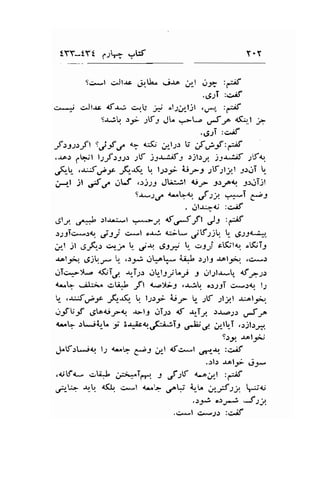 ۲۰۲ کتاب چهارم ۴۳۴-۴۳۳
گفتم: چون این هدف مطابق عدالت است؟
گفت: آری.
گفتم: پس، ازاین‌راه نیز ثابت شدکه عدالت نیست
جز اینکه هرکس صاحب مال و کار خود باشد؟
گفت: آری.
گفتم: گوش‌کن تا دراین نکته چه می‌گوئی؟ اگردرودگر
به‌کار کفشدوز بپردازد و کفشدوز کار درودگررا انجام دهد،
یا آن‌دو ابزارکار وحرفهٔ خودرا با یکدیگر عوض‌کنند، یایکی
ازآن‌دو به‌هردو حرفه اشتغال ورزد، گمان می‌کنی از این
وضع آسیب بزرگی به‌جامعه می‌رسد؟
گفت: نه‌چندان.
گفتم: ولی اگرکسی‌که برحسب استعداد طبیعی برای
پیشه‌وری یا بازرگانی ساخته شده است ثروتی به‌دست‌آورد
وآنگاه به‌اتکاء ثروت یا نیروی بدنی یا مزیت دیگری از این
دست، بخواهد وارد طبقهٔ سپاهیان شود، یا سربازی بخواهد
درجرگه پاسداران و فرمانروایان درآید بی‌آنکه صلاحیت‌آن
را به‌دست آورده باشد، وخلاصه اگر طبقات مختلف جامعه
بخواهند ابزار کار یا حرفهٔ خودرا با یکدیگر عوض‌کنند، یا
هرکس درصدد برآید که درآن واحد به‌حرفه‌های گوناگون
بپردازد، آیااین بی‌نظمی وآشفتگی‌به‌عقیدهٔ تو مایهٔ‌فساد جامعه
نخواهد بود؟
گفت: بدیهی است‌که این وضع جامعه را به‌فسادکامل
سوق خواهد داد.
گفتم: این‌همه کارگی و بهم‌آمیختن طبقات سه‌گانه،
نه‌تنها بزرگترین مایهٔ تباهی جامعه است بلکه باید جنایتی
بزرگ شمرده شود.
گفت: درست است.